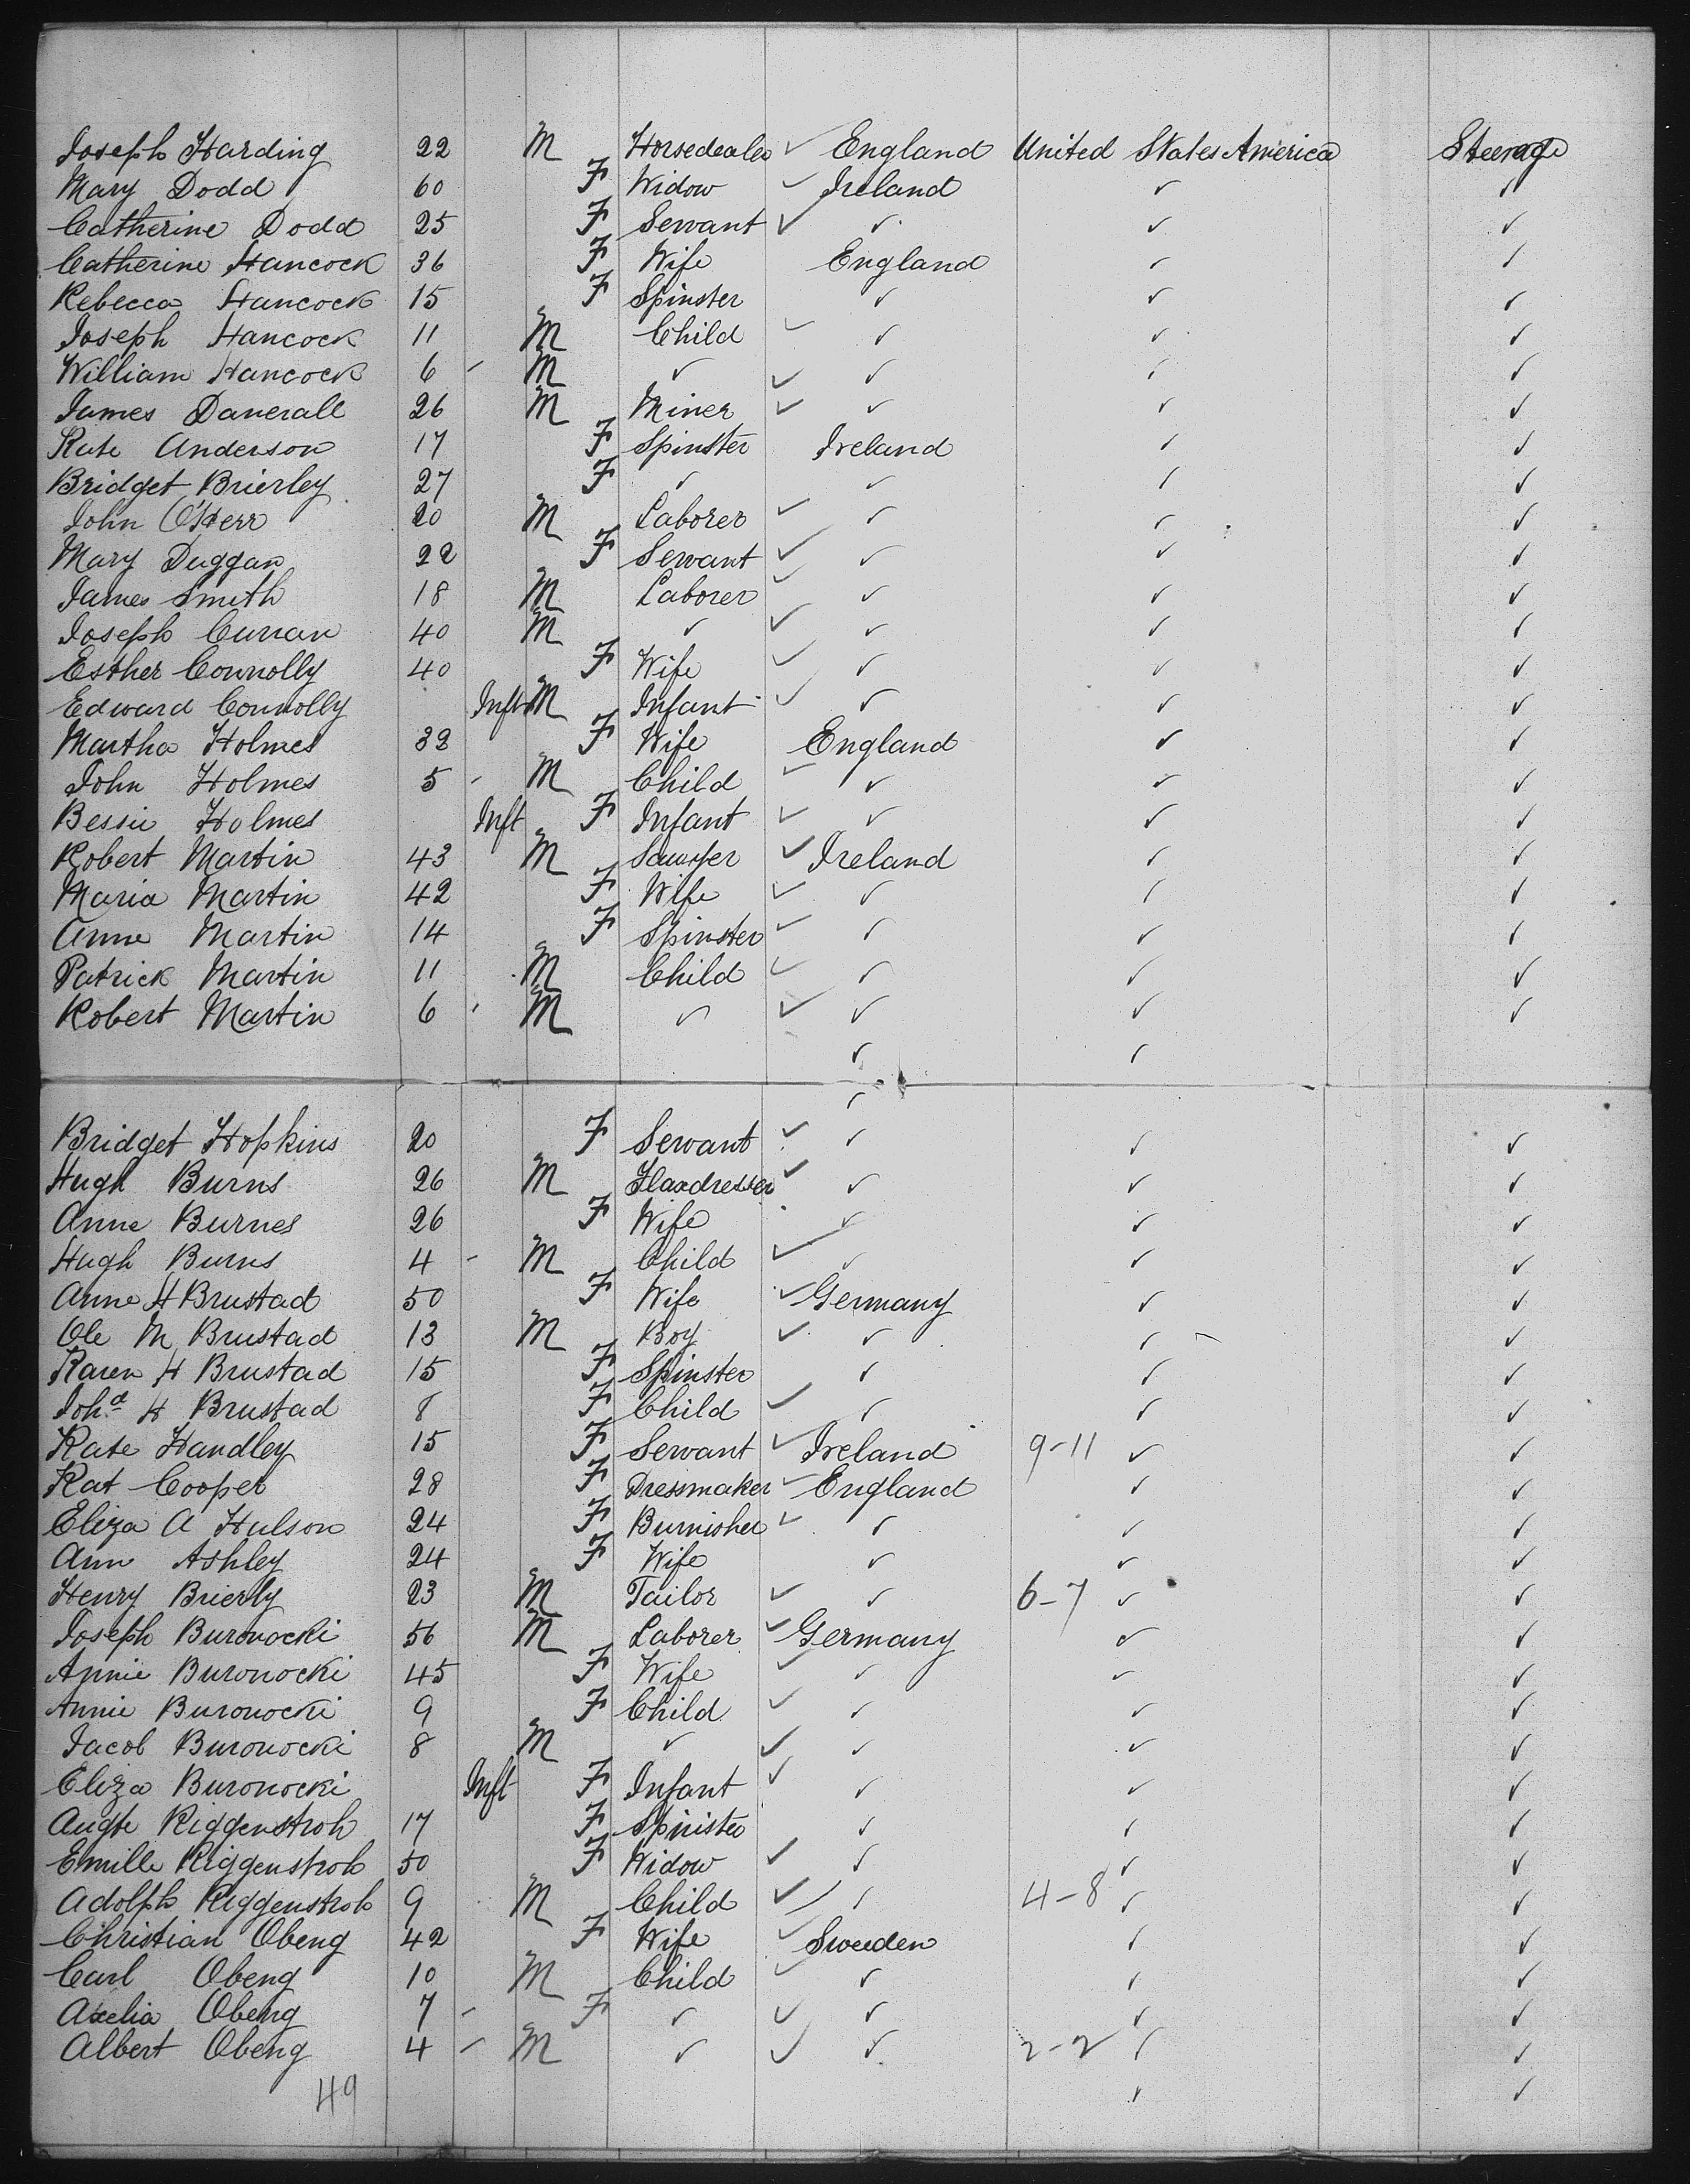 Joseph Harding 22 M Horsedealer ✓ England United States America Steerage
Mary Dodd 60 F Widow ✓ Ireland ✓ ✓
Catherine Dodd 25 F Servant ✓ ✓ ✓ ✓
Catherine Hancock 36 F Wife England ✓ ✓
Rebecca Hancock 15 F Spinster ✓ ✓ ✓
Joseph Hancock 11 M Child ✓ ✓ ✓ ✓
William Hancock 6 - M ✓ ✓ ✓ ✓ ✓
James Danerall 26 M Miner ✓ ✓ ✓ ✓
Kate Anderson 17 F Spinster Ireland ✓ ✓
Bridget Brierley 27 F ✓ ✓ ✓ ✓
John 20 M Laborer ✓ ✓ ✓ ✓
Mary Duggan 22 F Servant ✓ ✓ ✓ ✓
James Smith 18 M Laborer ✓ ✓ ✓ ✓
Joseph Curran 40 M ✓ ✓ ✓ ✓ ✓
Esther Connolly 40 F Wife ✓ ✓ ✓ ✓
Edward Connolly Inft M Infant ✓ ✓ ✓ ✓
Martha Holmes 32 F Wife England ✓ ✓
John Holmes 5 - M Child ✓ ✓ ✓ ✓
Bessie Holmes Inft F Infant ✓ ✓ ✓ ✓
Robert Martin 43 M Sawyer ✓ Ireland ✓ ✓
Maria Martin 42 F Wife ✓ ✓ ✓ ✓
Anne Martin 14 F Spinster ✓ ✓ ✓ ✓
Patrick Martin 11 M Child ✓ ✓ ✓ ✓
Robert Martin 6 - M ✓ ✓ ✓ ✓ ✓
✓ ✓
✓
Bridget Hopkins 20 F Servant ✓ ✓ ✓ ✓
Hugh Burns 26 M Flaxdresser ✓ ✓ ✓ ✓
Anne Burnes 26 F Wife ✓ ✓ ✓
Hugh Burns 4 - M Child ✓ ✓ ✓ ✓
Anne H Brustad 50 F Wife ✓ Germany ✓ ✓
Ole M Brustad 13 M Boy ✓ ✓ ✓ ✓
Karen H Brustad 15 F Spinster ✓ ✓ ✓
Johd H Brustad 8 F Child ✓ ✓ ✓ ✓
Kate Handley 15 F Servant ✓ Ireland 9-11 ✓ ✓
Kat Cooper 28 F Dressmaker ✓ England ✓ ✓
Eliza A Hulson 24 F Burnisher ✓ ✓ ✓ ✓
Ann Ashley 24 F Wife ✓ ✓ ✓
Henry Brierly 23 M Tailor ✓ ✓ 6-7 ✓ ✓
Joseph Buronocki 56 M Laborer ✓ Germany ✓ ✓
Annie Buronocki 45 F Wife ✓ ✓ ✓ ✓
Annie Buronocki 9 F Child ✓ ✓ ✓ ✓
Jacob Buronocki 8 M ✓ ✓ ✓ ✓ ✓
Eliza Buronocki Inft F Infant ✓ ✓ ✓ ✓
Augte Riggenstroh 17 F Spinster ✓ ✓ ✓
Emille Riggenstroh 50 F Widow ✓ ✓ ✓ ✓
Adolph Riggenstroh 9 M Child ✓ ✓ 4-8 ✓ ✓
Christian Obeng 42 F Wife ✓ Sweden ✓ ✓
Carl Obeng 10 M Child ✓ ✓ ✓ ✓
Axelia Obeng 7 - F ✓ ✓ ✓ ✓ ✓
Albert Obeng 4 - M ✓ ✓ ✓ 2-2 ✓ ✓
49 ✓ ✓